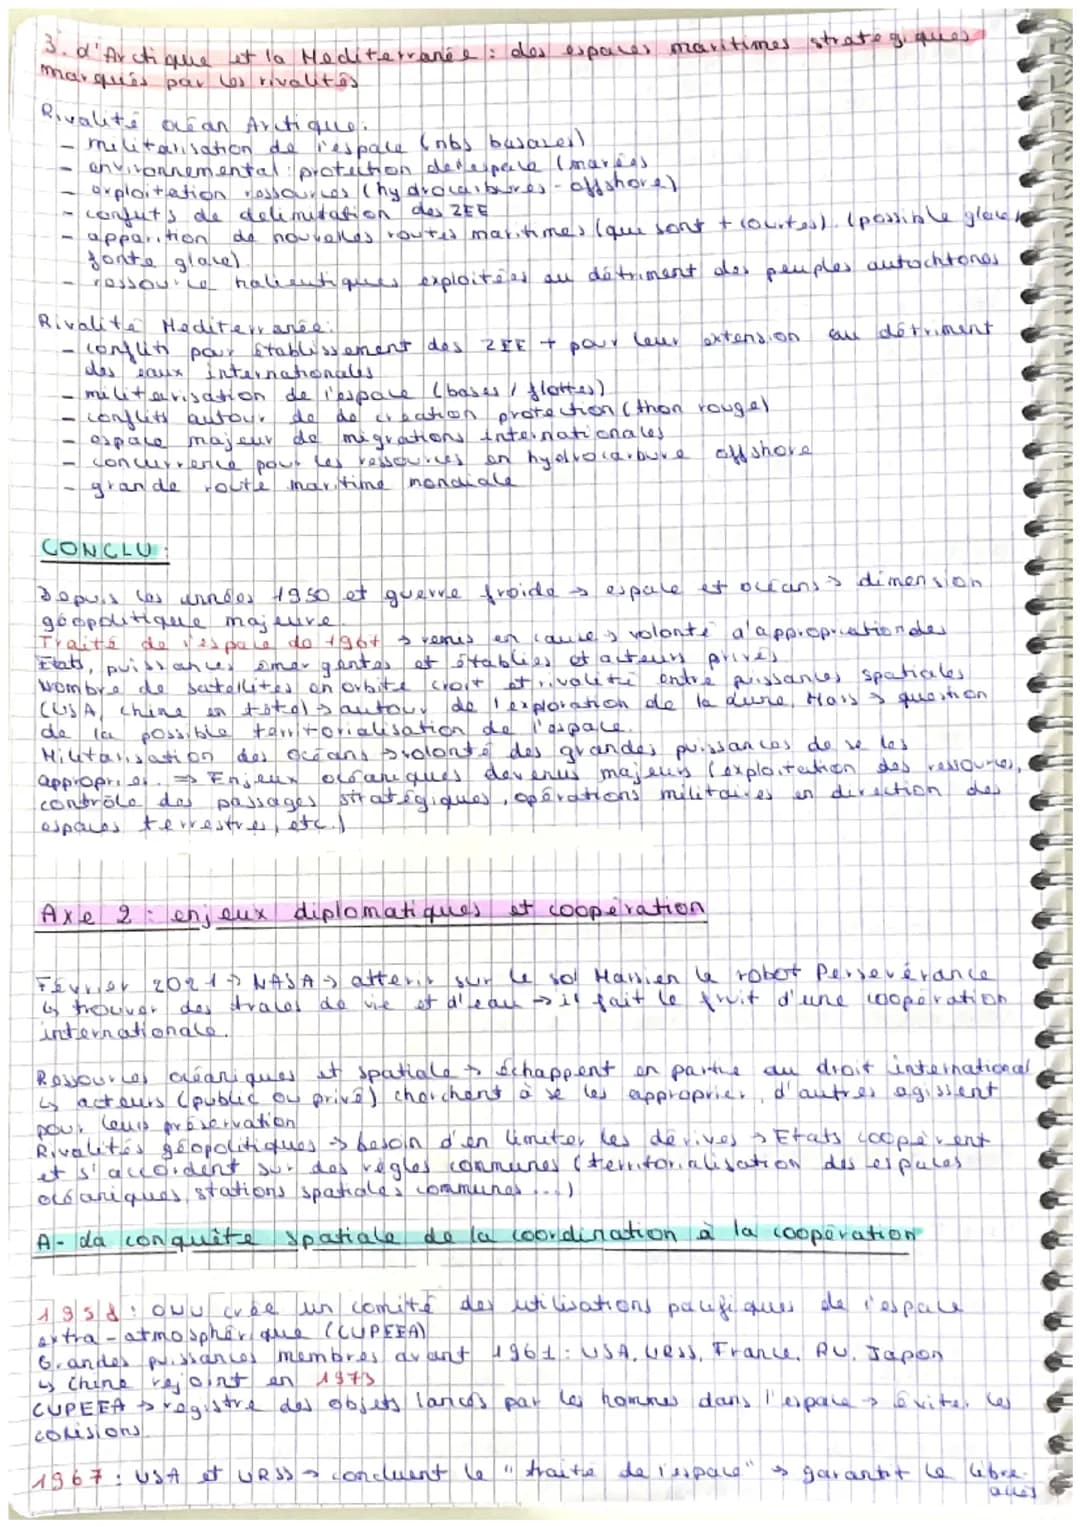 3. L'Arctique et la Mediterranée : des espaces maritimes stratégiques
marqués par les rivalités
Rivalité océan Arctique:
- militarisation de l'espace (nbs bases)
- environnemental : protection de l'espace (marées
- exploitation ressources (hydrocarbures - offshore)
- conflits de délimitation des ZEE
- apparition de nouvelles routes maritimes (que sont + courtes). (possible glace
fonte glace)
- ressource halieutiques exploitées au détriment des peuples autochtones
Rivalité Mediterranée:
- conflits pour établissement des ZEE + pour leur extension au détriment
des eaux internationales
- militarisation de l'espace (bases / flottes)
- conflits autour de de création protection (thon rouge)
- espace majeur de migrations internationales
- concurrence pour les ressources en hydrocarbure offshore
- grande route maritime mondiale
CONCLU :
Depuis les années 1950 et guerre froide → espace et océans → dimension
géopolitique majeure
Traité de l'espace de 1967 → remis en cause → volonté d'appropriation des
Etats, puissances émergentes et établies et acteurs privés
Nombre de satellites en orbite croit et rivalité entre puissances spatiales
(USA, Chine en total) → autour de l'exploration de la Lune, Mars → question
de la possible territorialisation de l'espace.
Militarisation des océans → volonté des grandes puissances de se les
approprier. ⇒ Enjeux océaniques devenus majeurs (exploitation des ressources,
contrôle des passages stratégiques, opérations militaires en direction des
espaces terrestres, etc.)
Axe 2 : enjeux diplomatiques et coopération
Février 2021 → NASA → atterir sur le sol Marsien le robot Persevérance
↳ trouver des traces de vie et d'eau → il fait le fruit d'une coopération
internationale.
Ressources océaniques et spatiale → échappent en partie au droit international
↳ acteurs (public ou privé) cherchent à se les approprier, d'autres agissent
pour leurs préservation
Rivalités géopolitiques → besoin d'en limiter les dérives → Etats coopèrent
et s'accordent sur des règles communes (territorialisation des espaces
océaniques, stations spatiales communes ...)
A- La conquête spatiale de la coordination à la coopération
1958 : ONU crée un comité des utilisations pacifiques de l'espace
extra-atmosphérique (CUPEEA)
Grandes puissances membres avant 1961 : USA, URSS, France, RU, Japon
↳ Chine rejoint en 1973
CUPEEA → registre des objets lancés par les hommes dans l'espace → éviter les
colisions
1967 : USA et URSS → concluent le "traité de l'espace" → garantit le libre
accès